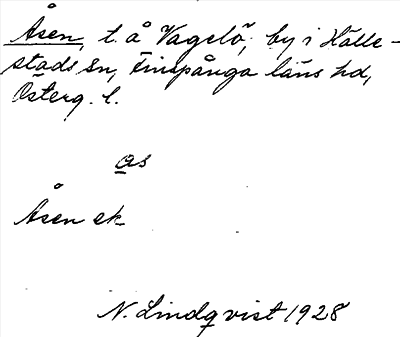 Åsen, t. å Vagelö, by i Hälle-
stads sn, Finspånga läns hd,
Österg. l.
as
Åsen ek
N. Lindqvist 1928